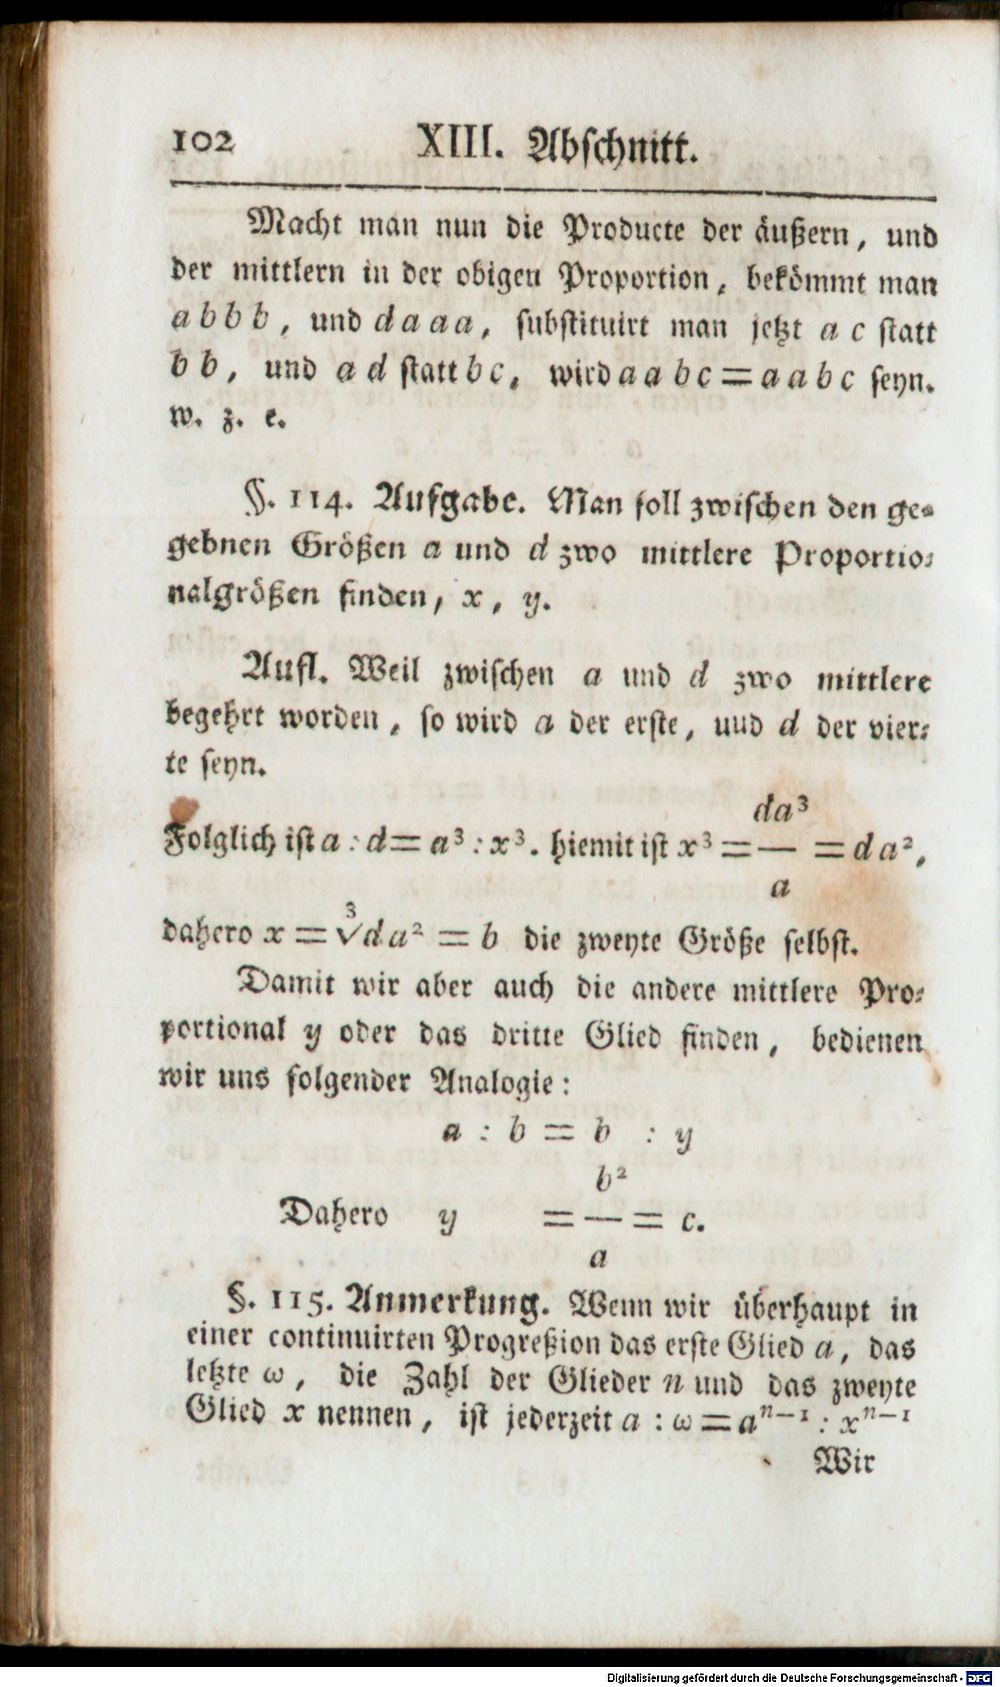 102 XIII. Abschnitt.
Macht man nun die Producte der äußern, und
der mittlern in der obigen Proportion, bekömmt man
a b b b, und d a a a, substituirt man jetzt a c statt
b b, und a d statt b c, wird a a b c = a a b c seyn.
w. z. e.
§. 114. Aufgabe. Man soll zwischen den ge-
gebnen Größen a und d zwo mittlere Proportio-
nalgrößen finden, x, y.
Aufl. Weil zwischen a und d zwo mittlere
begehrt worden, so wird a der erste, uud d der vier-
te seyn.
Folglich ist a : d = a³ : x³. hiemit ist x³ = da³/a = d a²,
dahero x = ³√d a² = b die zweyte Größe selbst.
Damit wir aber auch die andere mittlere Pro-
portional y oder das dritte Glied finden, bedienen
wir uns folgender Analogie:
a : b = b : y
Dahero y = b²/a = c.
§. 115. Anmerkung. Wenn wir überhaupt in
einer continuirten Progreßion das erste Glied a, das
letzte ω, die Zahl der Glieder n und das zweyte
Glied x nennen, ist jederzeit a : ω = aⁿ⁻¹ : xⁿ⁻¹
Wir
Digitalisierung gefördert durch die Deutsche Forschungsgemeinschaft - DFG